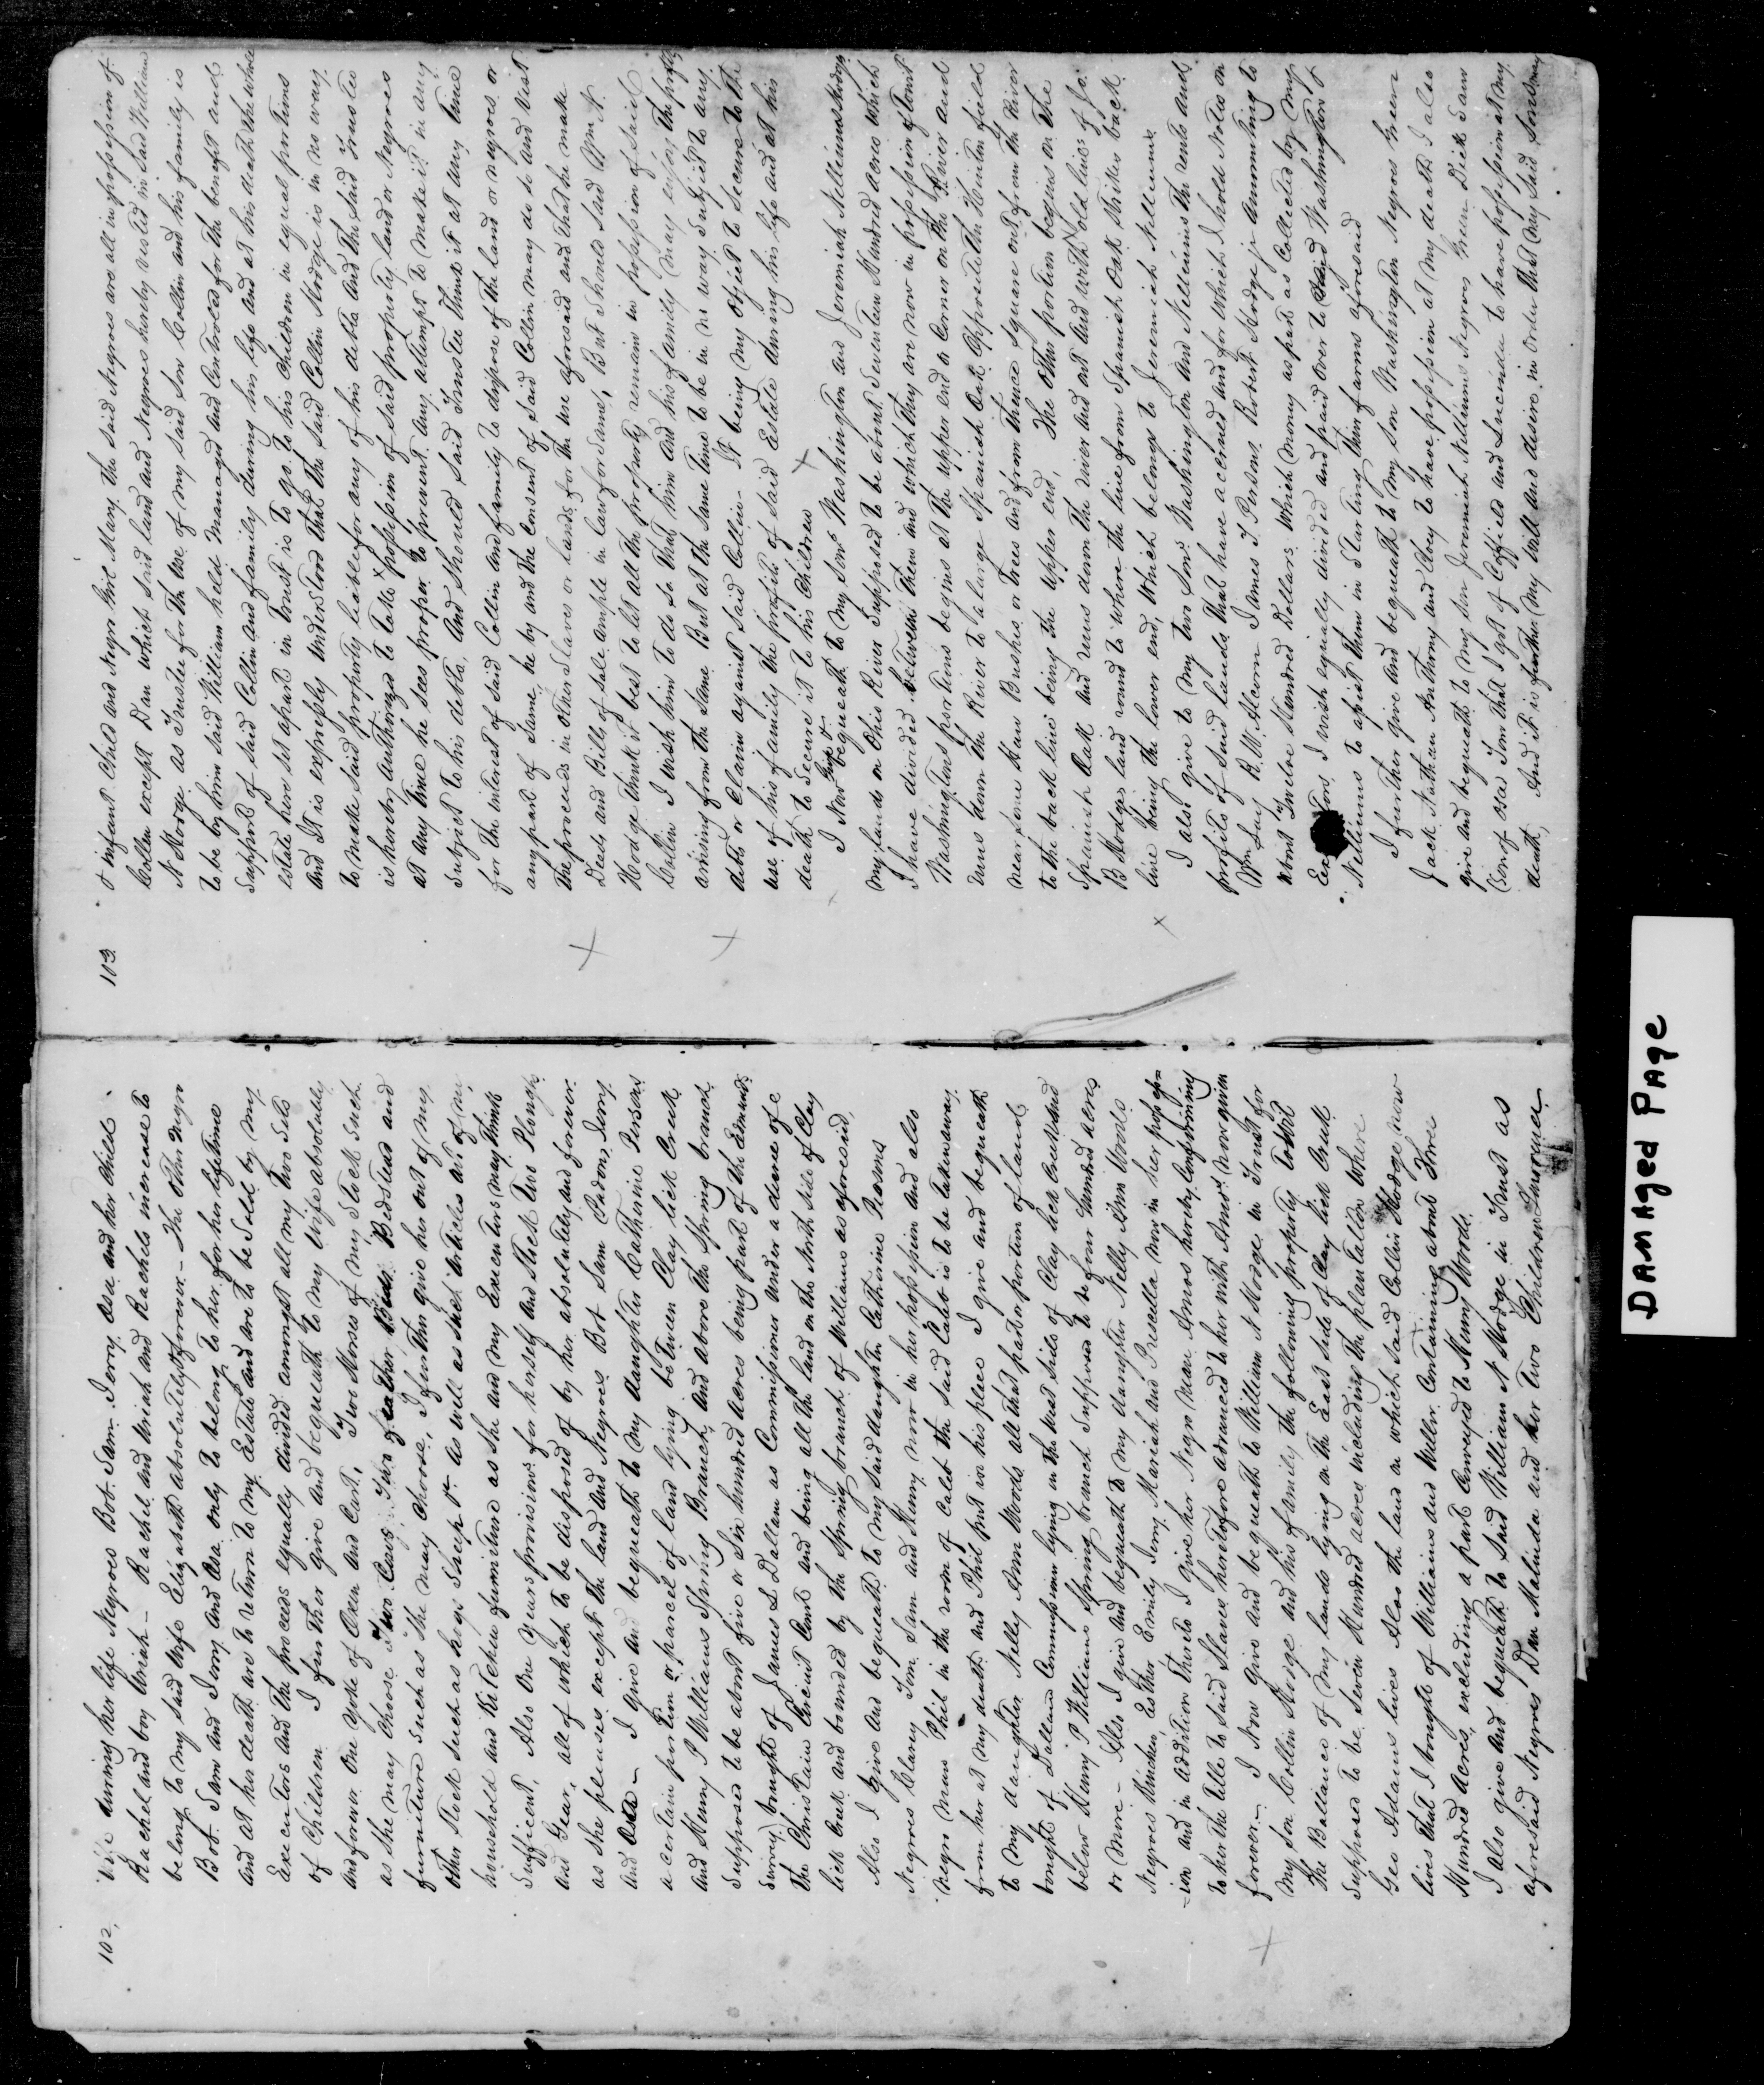 102.
Wife during her life Negroes Bob. Sam. Jerry Asa and her child
Rachel and boy Uriah – Rachel and Uriah and Rachels increase to
belong to my said Wife Elizabeth absolutely & forever. – The other negro
Bob. Sam and Jerry and Asa only to belong to her for her lifetime
and at her death are to return to my Estate and are to be sold by my
Executors and the proceeds equally divided amongst all my two sets
of Children I further give and bequeath to my Wife absolutely
and forever One Yoke of Oxen and Cart, Two Horses of my Stock such
as she may choose Two Cows, Two feather Beds Bedsteads and
furniture such as she may choose, I further give her out of my
other Stock such as hogs Sheep &c as well as such articles of my
household and Kitchen furniture as she and my Executors may think
Sufficient, Also One Years provisions for herself and Stock Two Ploughs
and Gear, all of which to be disposed of by her absolutely and forever
as she pleases except the land and Negroes Bob Sam Jerry
and Asa – I give and bequeath to my daughter Catharine Persons
a certain portion or parcel of land lying between Clay lick Creek
and Henry P Williams Spring Branch, and above the Spring branch
Supposed to be about five or Six hundred acres being part of the Edmunds
Survey bought of James L Dallam as Commissioner under a decree of
the Christain Circuit Court and being all the land on the North side of Clay
lick Creek and bounded by the Spring branch of Williams as aforesaid
Also I give and bequeath to my said daughter Catharine Persons
Negroes Clary Tom, Sam and Henry now in her possession and also
Negro man Phil in the room of Caleb the said Caleb is to be taken away
from her at my death and Phil put in his place I give and bequeath
to my daughter Nelly Ann Woods all that part or portion of land
bought of Dallam Commissioner lying on the West side of Clay lick Creek and
below Henry P Williams Spring branch Supposed to be four hundred acres
or more – Also I give and bequeath to my daughter Nelly Ann Woods
Negroes Esther Emily Jerry Mariah and Prescilla now in her possess
=ion and in addition thereto I give her Negro Man Amos hereby confirming
to her the title to said Slaves heretofore advanced to her with Amos now given
forever. – I Now give and bequeath to William N Hodge in Trust for
my Son Collin Hodge and his family the following property towit
The Ballance of my lands lying on the East side of Clay lick Creek
Supposed to be Seven Hundred acres including the plantation where
Geo Adams lives Also the land on which said Collin Hodge now
lives that I bought of Williams and Miller Containing about Three
Hundred Acres, excluding a part Conveyed to Henry Woods
I also give and bequeath to said William N Hodge in Trust as
aforesaid Negroes Dan Malinda and her two Children Laurence
103.
& infant Child and Negro Girl Mary the said Negroes are all in possession of
Collin except Dan which said land and Negroes hereby vested in said William
N Hodge as Trustee for the use of my said Son Collin and his family is
to be by him said William held managed and Controled for the benefit and
Support of said Collin and family during his life and at his death the whole
estate here set apart in Trust is to go to his Children in equal portions
and It is expressly understood that the said Collin Hodge is in no way
to make said property liable for any of his debts and the said Trustee
is hereby authorized to take possession of said property land or Negroes
at any time he sees proper to prevent any attempt to make it in any
subject to his debts, and should said Trustee think it at any time
for the interest of said Collin and family to dispose of the land or negroes or
any part of same he by and the consent of said Collin may do so and vest
the proceeds in other Slaves or lands for the use aforesaid and that he make
Deeds and Bills of sale ample in law for same, But should said Wm N.
Hodge think it best to let all the property remain in possession of said
Collin I wish him to do so that him and his family may enjoy the profits
arising from the same But at the same time to be in no way subject to any
debts or Claim against said Collin It being my object to secure to the
use of his family the profits of said Estate during his life and at his
death to secure it to his Children
I Now give & bequeath to my Sons Washington and Jeremiah Nelliums Hodge
my lands on Ohio River Supposed to be about Seventeen Hundred acres which
I have divided between them and which they are now in possession of towit
Washingtons portions begins at the upper end or Corner on the River and
runs down the River to a large Spanish Oak Opposite the Hinton field
near some Haw Bushes or Trees and from thence Square out from the River
to the back line being the upper end, The other portion begins on the
Spanish Oak and runs down the river and out and with old lines of Jo.
B Hodges land round to where the line from Spanish Oak Strikes back
line being the lower end, which belongs to Jeremiah Nelliums.
I also give to my two Sons Washington and Nelliums the rents and
profits of said lands that have accrued and for which I hold Notes on
Wm Guy R.W. Alcorn James J Persons Robert Hodge jr Ammounting to
about Twelve Hundred Dollars which money as part as Collected by my
Executors I wish equally divided and paid over to said Washington &
Nelliums to assist them in Starting their farms aforesaid
I further give and bequeath to my Son Washington Negroes Green
Jack Nathan Anthony and Cloey to have possession at my death I also
give and bequeath to my son Jeremiah Nelliums Negroes Green Dick Sam
(Son of Asa) Tom that I got of Coffield and Lucinda to have possession at my
death, And it is further my Will and desire in order that my said Sons my
DAMAged PAge